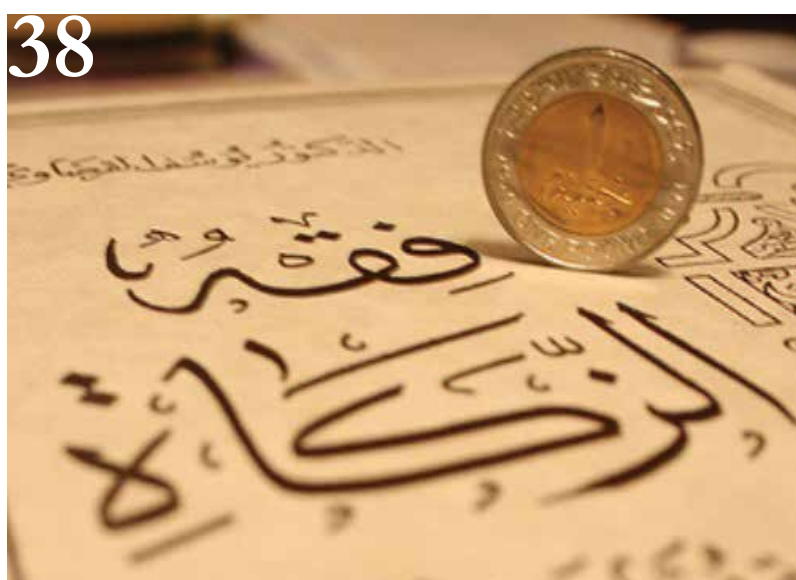 38
الدكتور يوسف القرضاوي
فقه
الزكاة